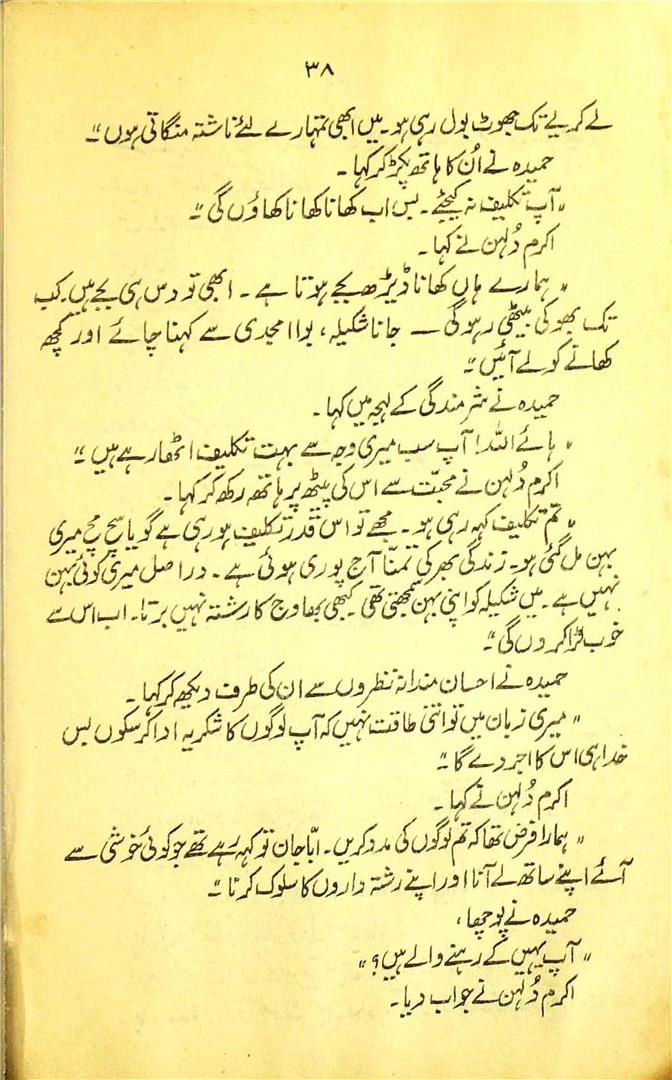 ۳۸
لے کر یے تک جھوٹ بول رہی ہو۔ میں ابھی تمہارے لئے ناشتہ منگاتی ہوں"۔
حمیدہ نے اُن کا ہاتھ پکڑ کر کہا۔
"آپ تکلیف نہ کیجئے۔ بس اب کھانا کھانا کھاؤں گی"۔
اکرم دُلہن نے کہا۔
"ہمارے ہاں کھانا ڈیڑھ بجے ہوتا ہے۔ ابھی تو دس ہی بجے ہیں۔ کب
تک بھوکی بیٹھی رہوگی — جانا شکیلہ، بوا امجدی سے کہنا چائے اور کچھ
کھانے کو لے آئیں"۔
حمیدہ نے شرمندگی کے لہجہ میں کہا۔
"ہائے اللہ! آپ سب میری وجہ سے بہت تکلیف اٹھا رہے ہیں"۔
اکرم دُلہن نے محبّت سے اس کی پیٹھ پر ہاتھ رکھ کر کہا۔
"تم تکلیف کہہ رہی ہو۔ مجھے تو اس قدر تکلیف ہو رہی ہے گویا سچ مچ میری
بہن مل گئی ہو۔ زندگی بھر کی تمنّا آج پوری ہوئی ہے۔ دراصل میری کوئی بہن
نہیں ہے۔ میں شکیلہ کو اپنی بہن سمجھتی تھی۔ کبھی بھاوج کا رشتہ نہیں برتا۔ اب اس سے
خوب لڑا کروں گی"۔
حمیدہ نے احسان مندانہ نظروں سے ان کی طرف دیکھ کر کہا۔
"میری زبان میں تو اتنی طاقت نہیں کہ آپ لوگوں کا شکریہ ادا کر سکوں بس
خدا ہی اس کا اجر دے گا"۔
اکرم دُلہن نے کہا۔
"ہمارا فرض تھا کہ تم لوگوں کی مدد کریں۔ ابّا جان تو کہہ رہے تھے جو کوئی خوشی سے
آئے اپنے ساتھ لے آنا اور اپنے رشتہ داروں کا سلوک کرنا"۔
حمیدہ نے پوچھا،
"آپ یہیں کے رہنے والے ہیں؟"
اکرم دُلہن نے جواب دیا۔